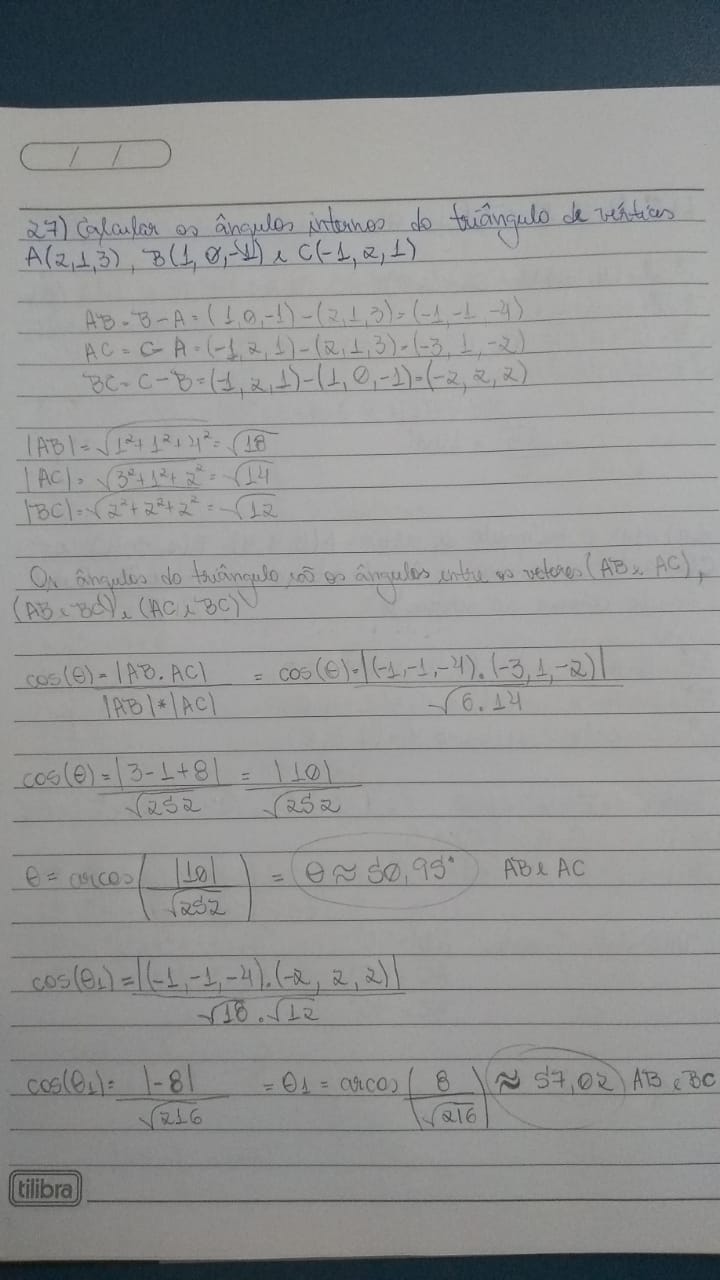 / /
27) Calcular os ângulos internos do triângulo de vértices
A(2,1,3), B(1,0,-1) e C(-1,2,1)
AB = B - A = (1,0,-1) - (2,1,3) = (-1,-1,-4)
AC = C - A = (-1,2,1) - (2,1,3) = (-3,1,-2)
BC = C - B = (-1,2,1) - (1,0,-1) = (-2,2,2)
|AB| = √1²+1²+4² = √18
|AC| = √3²+1²+2² = √14
|BC| = √2²+2²+2² = √12
Os ângulos do triângulo são os ângulos entre os vetores (AB e AC),
(AB e BC) e (AC e BC)
cos(θ) = |AB . AC| = cos(θ) = |(-1,-1,-4) . (-3,1,-2)|
|AB| * |AC| √6.14
cos(θ) = |3-1+8| = |10|
√252 √252
θ = arcos ( |10| ) = θ ≈ 50,95° AB e AC
√252
cos(θ1) = |(-1,-1,-4) . (-2,2,2)|
√18 . √12
cos(θ1) = |-8| = θ1 = arcos ( 8 ) ≈ 57,02 AB e BC
√216 √216
tilibra